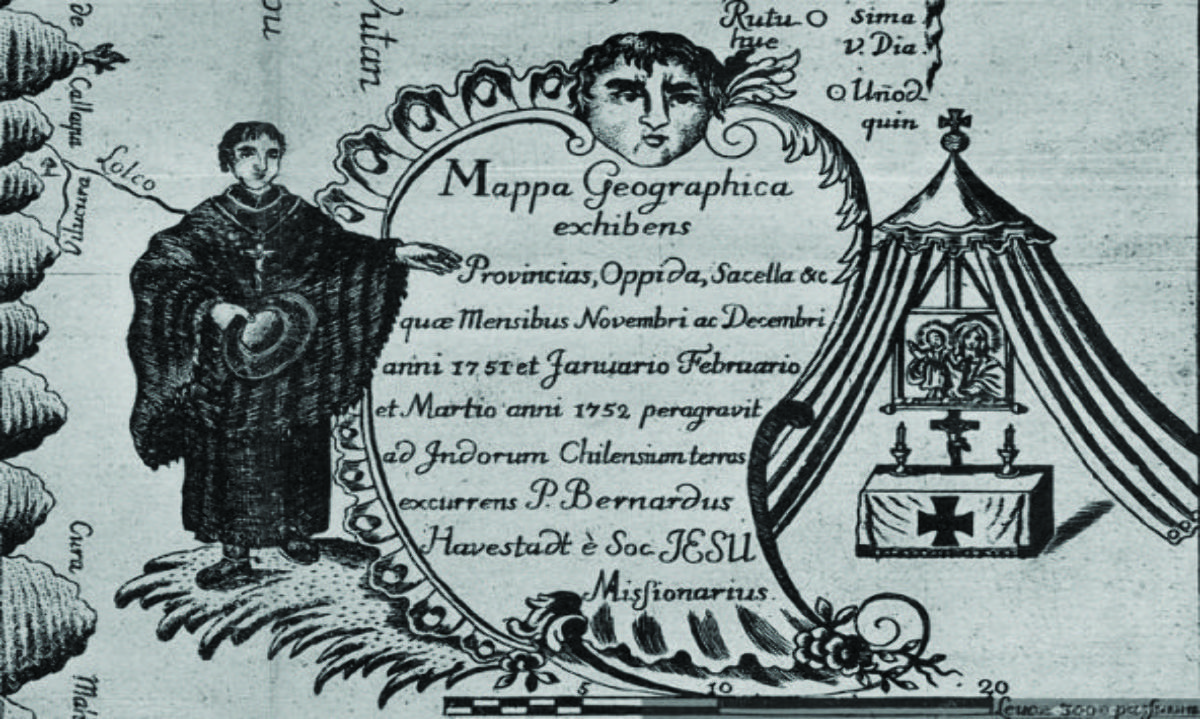 Rutu
hue
sima
v. Dia.
Uñod
quin
de
Callaqui
Lolco
Mappa Geographica
exhibens
Provincias, Oppida, Sacella &c
quæ Mensibus Novembri ac Decembri
anni 1751 et Januario Februario
et Martio anni 1752 peragravit
ad Indorum Chilensium terras
excurrens P. Bernardus
Havestadt è Soc. JESU
Missionarius.
Cura
Mah
5 10 20
Leucæ 3000 passuum